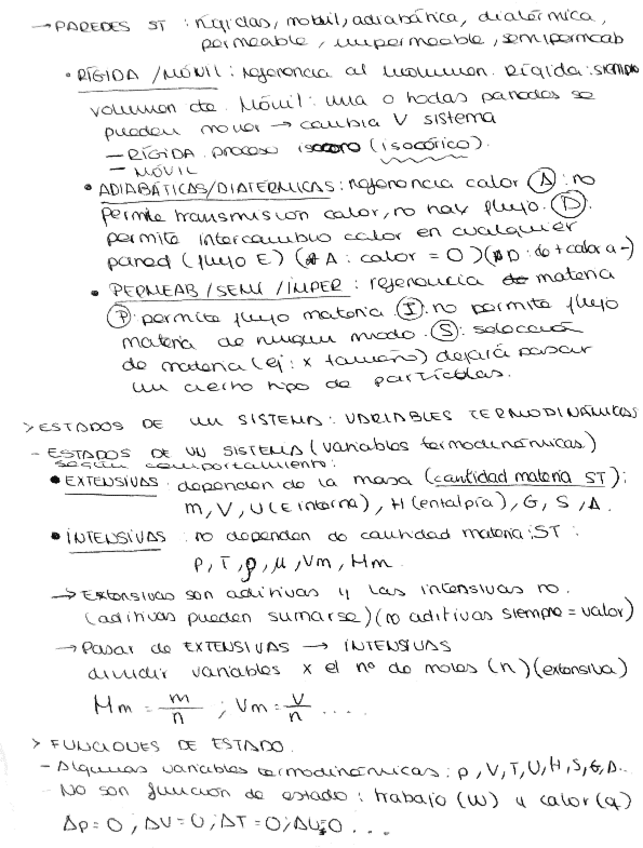 → PAREDES ST : rígidas, mobil, adiabática, dialérmica,
permeable, impermeable, semipermeab
• RÍGIDA / MÓVIL : referencia al volumen. Rígida: siempre
volumen cte. Móvil: una o todas paredes se
pueden mover → cambia V sistema
– RÍGIDA proceso (isocórico).
– MÓVIL
• ADIABÁTICAS/DIATÉRMICAS : referencia calor (A) : no
permite transmisión calor, no hay flujo. (D).
permite intercambio calor en cualquier
pared (flujo E) (A : calor = 0) (D : de + calor a -)
• PERMEAB / SEMI / IMPER : referencia materia
(P) : permite flujo materia. (I) : no permite flujo
materia de ningun modo. (S) : selección
de materia (ej : x tamaño) dejará pasar
un cierto tipo de partículas.
> ESTADOS DE UN SISTEMA : VARIABLES TERMODINÁMICAS
- ESTADOS DE UN SISTEMA (variables termodinámicas)
según comportamiento :
• EXTENSIVAS dependen de la masa (cantidad materia ST) :
m, V, U (E interna), H (entalpía), G, S, A.
• INTENSIVAS : no dependen de cantidad materia ST :
P, T, ρ, μ, Vm, Mm.
→ Extensivas son aditivas y las intensivas no.
(aditivas pueden sumarse) (no aditivas siempre = valor)
→ Pasar de EXTENSIVAS → INTENSIVAS
dividir variables x el nº de moles (n) (extensiva)
Mm = m/n ; Vm = V/n ....
> FUNCIONES DE ESTADO.
- Algunas variables termodinámicas : p, V, T, U, H, S, G, A.
- No son función de estado : trabajo (w) y calor (q)
Δp = 0 ; ΔV = 0 ; ΔT = 0 ; ΔU = 0 ...